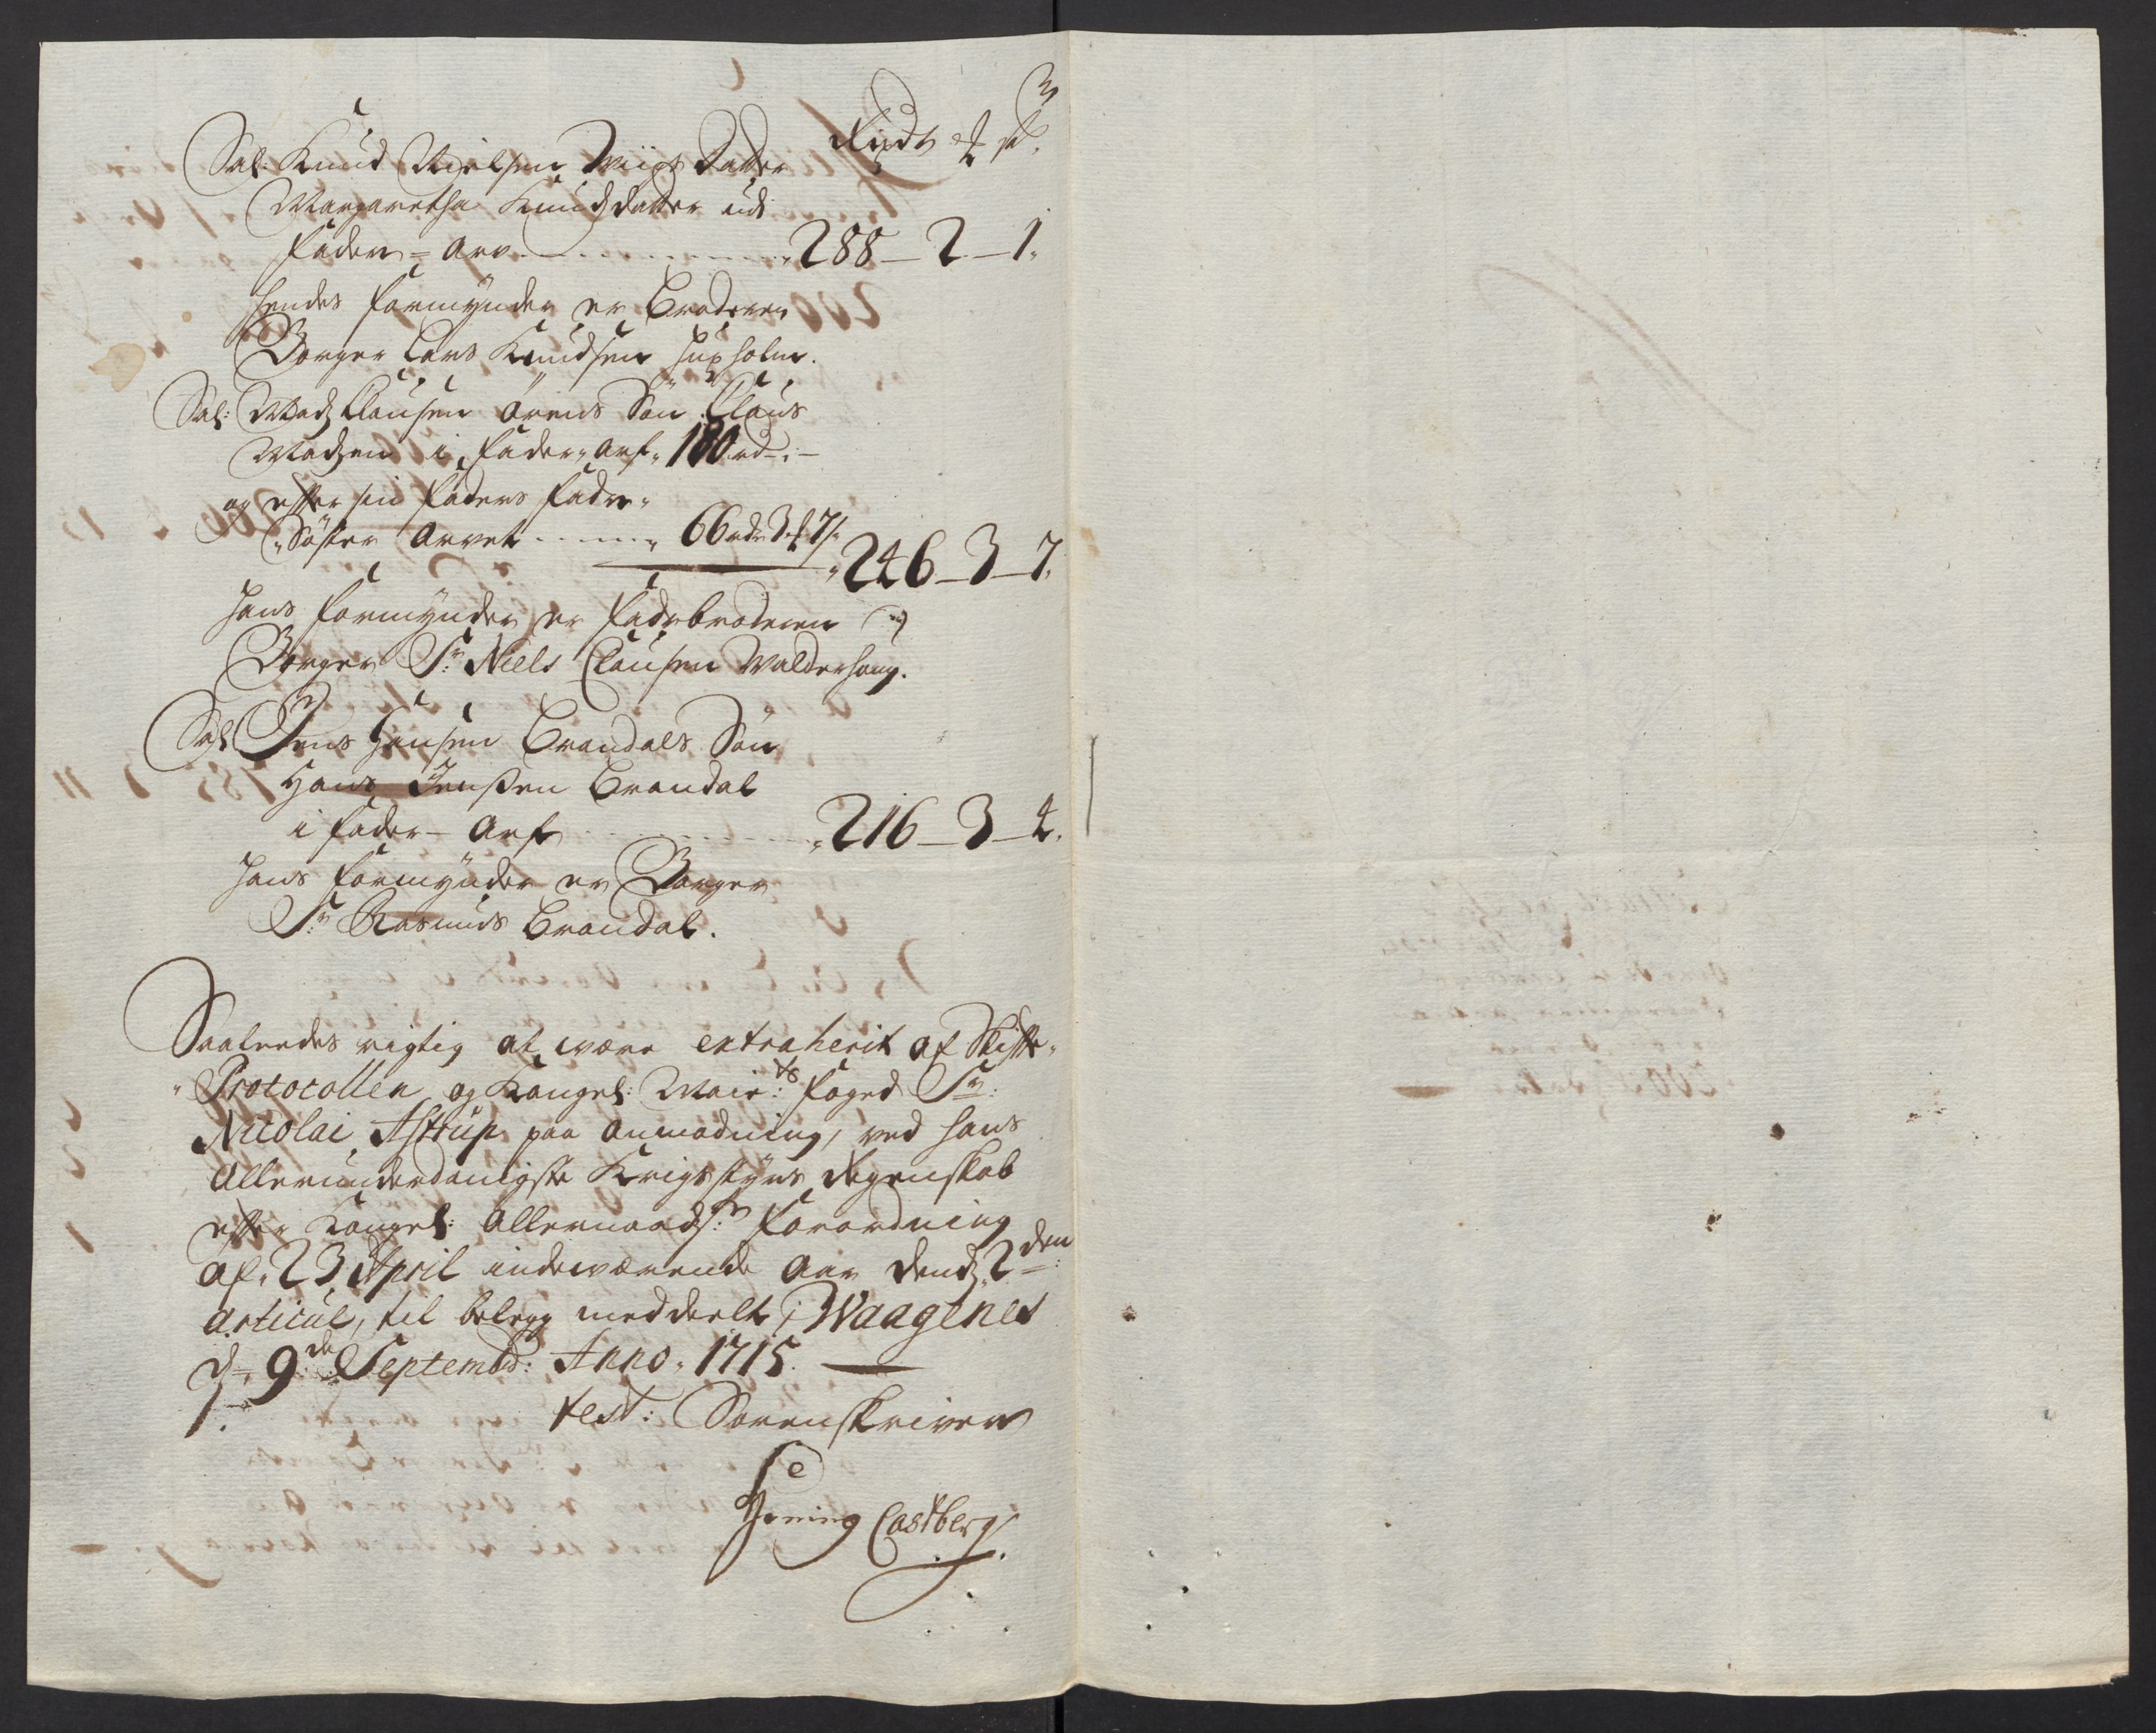 Rixdr ort s.
Sal: Knud Nielsen Wiigs Datter
Margaretha Knudsdatter udi
Fædern = Arv - - - - - - - 288 - 2 - 1.
Hendes Formynder er Broderen
Borger Lars Knudsen Huxholm.
Sal: Madz Clausen Örens Sön Claus
Madzen i Fæder-Arf 180 rd - : -
og effter sin Faders Fader-
Söster Arvet - - - - 66 rdr 3 ort 7 s
246 - 3 - 7.
Hans Formynder er Faderbroderen
Borger Sr. Niels Clausen Walderhoug.
Sal: Jens Hansen Brandals Sön
Hans Jenssen Brandal
i Fæder - Arf - - - - - - 216 - 3 - 4.
Hans Formynder er Borger
Sr. Rasmus Brandal.
Saaledes rigtig at være extraherit af Skiffte-
Protocollen og Kongel: Maie:ts Foged Sr:
Nicolai Astrup paa Anmodning, ved hans
Allerunderdanigste Krigsstyrs Regenskab
effter Kongel: Allernaadste Forordning
af 23 April indeværende Aar dendz 2den
Articul, til belegg meddeelt, i Waagenes
d. 9de Septembr: Anno 1715.
test: Sorenskriver
Heming Castberg.